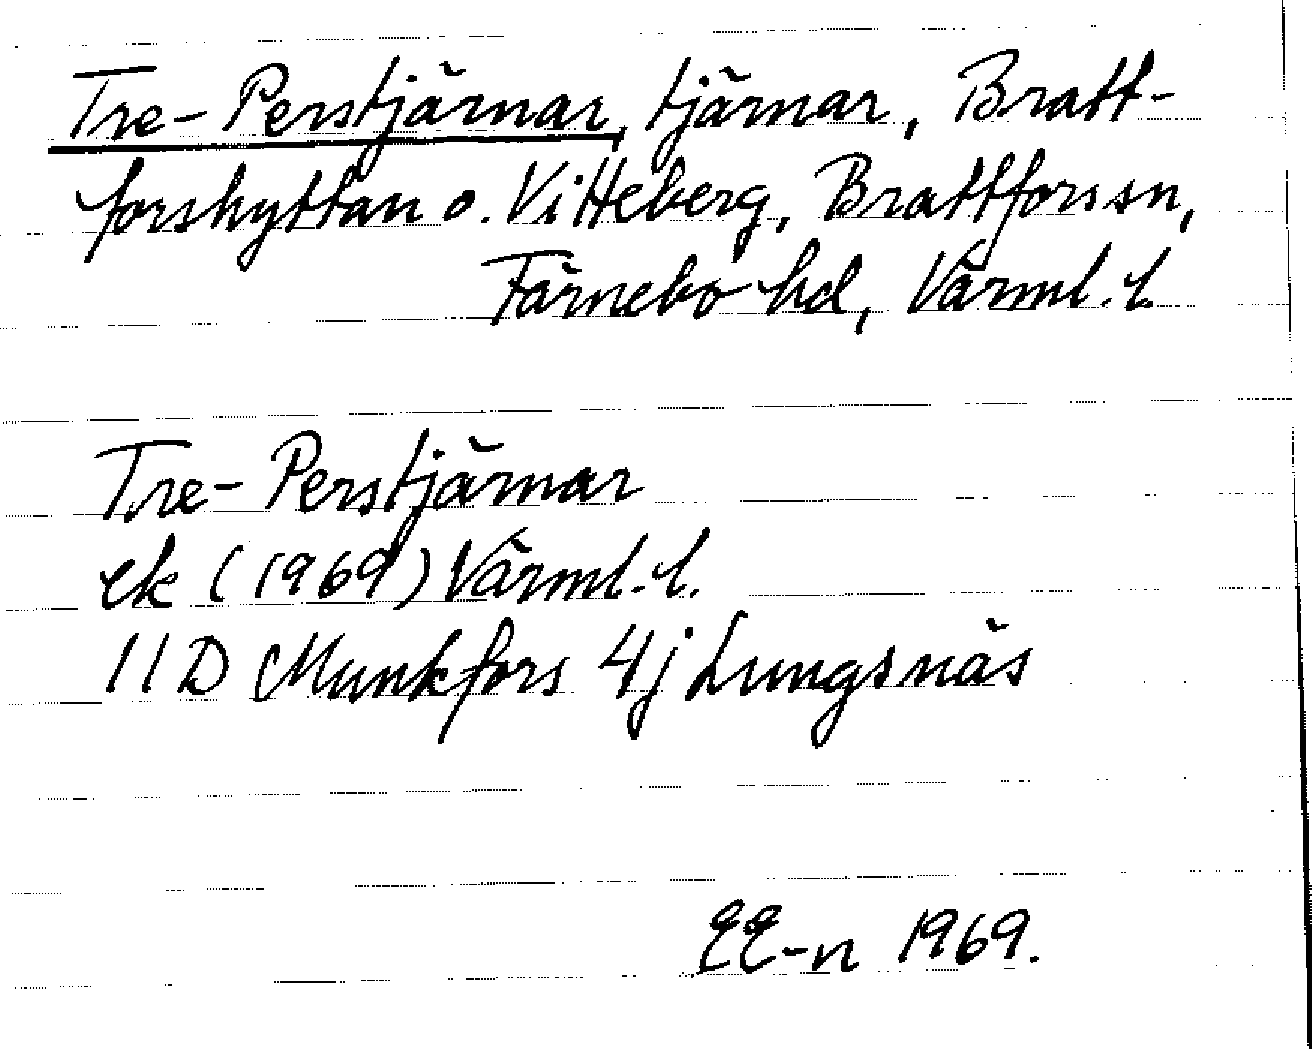 Tre-Perstjärnar, tjärnar, Bratt-
forshyttan o. Vitteberg, Brattfors sn,
Färnebo hd, Värml. l.
Tre-Perstjärnar
ek (1969) Värml. l.
11 D Munkfors 4j Lungsnäs
EE-n 1969.